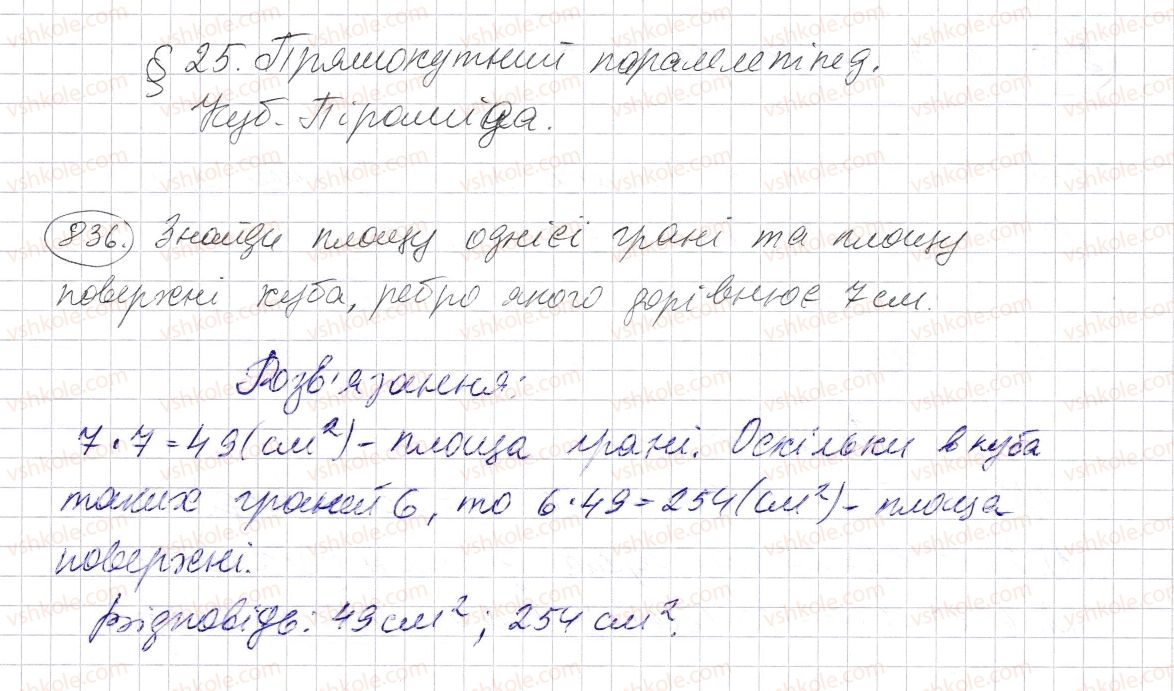 § 25. Прямокутний паралелепіпед.
Куб. Піраміда.
836. Знайди площу однієї грані та площу
поверхні куба, ребро якого дорівнює 7 см.
Розв'язання:
7·7=49(см²) - площа грані. Оскільки в куба
таких граней 6, то 6·49=254(см²) - площа
поверхні.
Відповідь: 49 см²; 254 см².